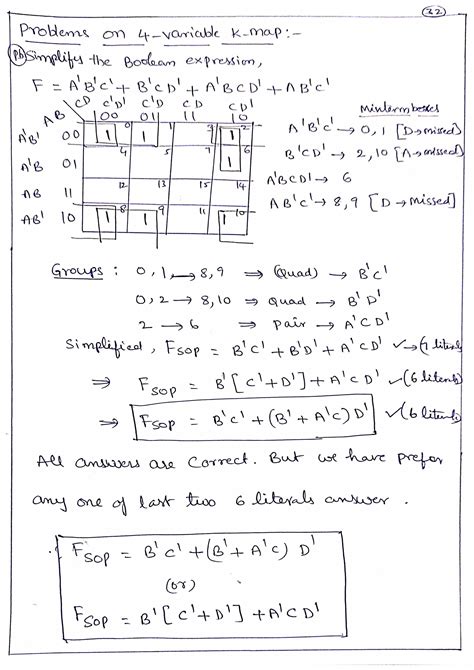 32
Problems on 4-variable K-map:-
Pb) Simplify the Boolean expression,
F = A'B'C' + B'CD' + A'BCD' + AB'C'
CD C'D' C'D CD CD'
AB 00 01 11 10
A'B' 00 1 0 1 1 3 1 2
A'B 01 4 5 7 1 6
AB 11 12 13 15 14
AB' 10 1 8 1 9 11 1 10
Minterm boxes
A'B'C' → 0, 1 [D → missed]
B'CD' → 2, 10 [A → missed]
A'BCD' → 6
AB'C' → 8, 9 [D → missed]
Groups : 0, 1, → 8, 9 ⇒ (Quad) → B'C'
0, 2 → 8, 10 ⇒ Quad → B'D'
2 → 6 ⇒ Pair → A'CD'
Simplified, FSOP = B'C' + B'D' + A'CD' ✓→ (7 literals
⇒ FSOP = B'[C'+D'] + A'CD' ✓(6 literals)
⇒ FSOP = B'C' + (B' + A'C) D' ✓(6 literals)
All answers are correct. But we have prefer
any one of last two 6 literals answer.
FSOP = B'C' + (B' + A'C) D'
(or)
FSOP = B'[C'+D'] + A'CD'